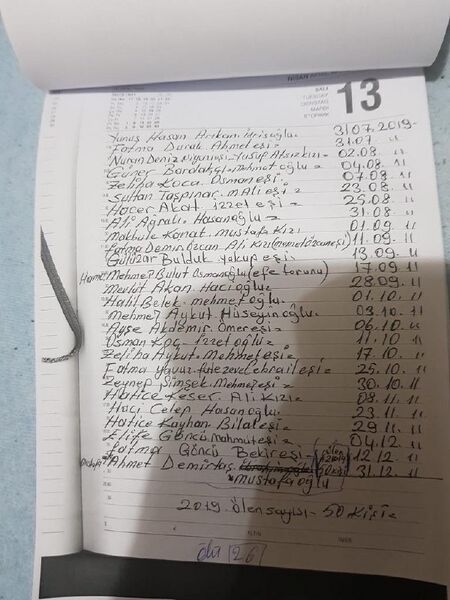 NİSAN
SALI
TUESDAY
DIENSTAG
MARDI
13
Yunus Hasan Arıkanİdrisoğlu. 31.07.2019-
Fatma Durak Ahmetesi= 31.07 "
Nuran Deniz Yusuf Kızı- 02.08. "
Güner Bardakçı mehmetoğlu= 04.08 "
Zeliha Koca Osmanesi= 07.08 "
Sultan Taşpınar. mAliesi= 23.08 "
Hacer Akat izzetesi= 25.08 "
Ali Ağralı Hasanoğlu= 31.08 "
Makbule Kanat mustafa Kızı 01.09 "
Fatma Demirözcan Ali Kızı 11.09 "
Gülüzar Bulduk yakupesi= 13.09 "
Mehmet Bulut Osmanoğlu (efe torunu) 17.09 "
Mevlüt Akan Hacıoğlu= 28.09. "
Halil Belek. mehmetoğlu= 01.10. "
Mehmet Aykut Hüseyinoğlu= 03.10 "
Ayşe Akdemir Ömeresi= 06.10 "
Osman Koç izzetoğlu= 11.10 "
Zeliha Aykut Mehmetesi= 17.10 "
Fatma Yavuz 25.10. "
Zeynep Şimşek Mehmetesi= 30.10 "
Hatice Keser Ali Kızı= 08.11 "
Hacı Celep Hasanoğlu= 23.11 "
Hatice Kayhan Bilalesi= 29.11 "
Elife Göncü Mahmutesi= 04.12 "
Fatma Göncü Bekiresi= 12.12 "
Ahmet Demirtaş 31.12 "
mustafaoğlu
2019. ölen sayısı= 50 Kişi=
26